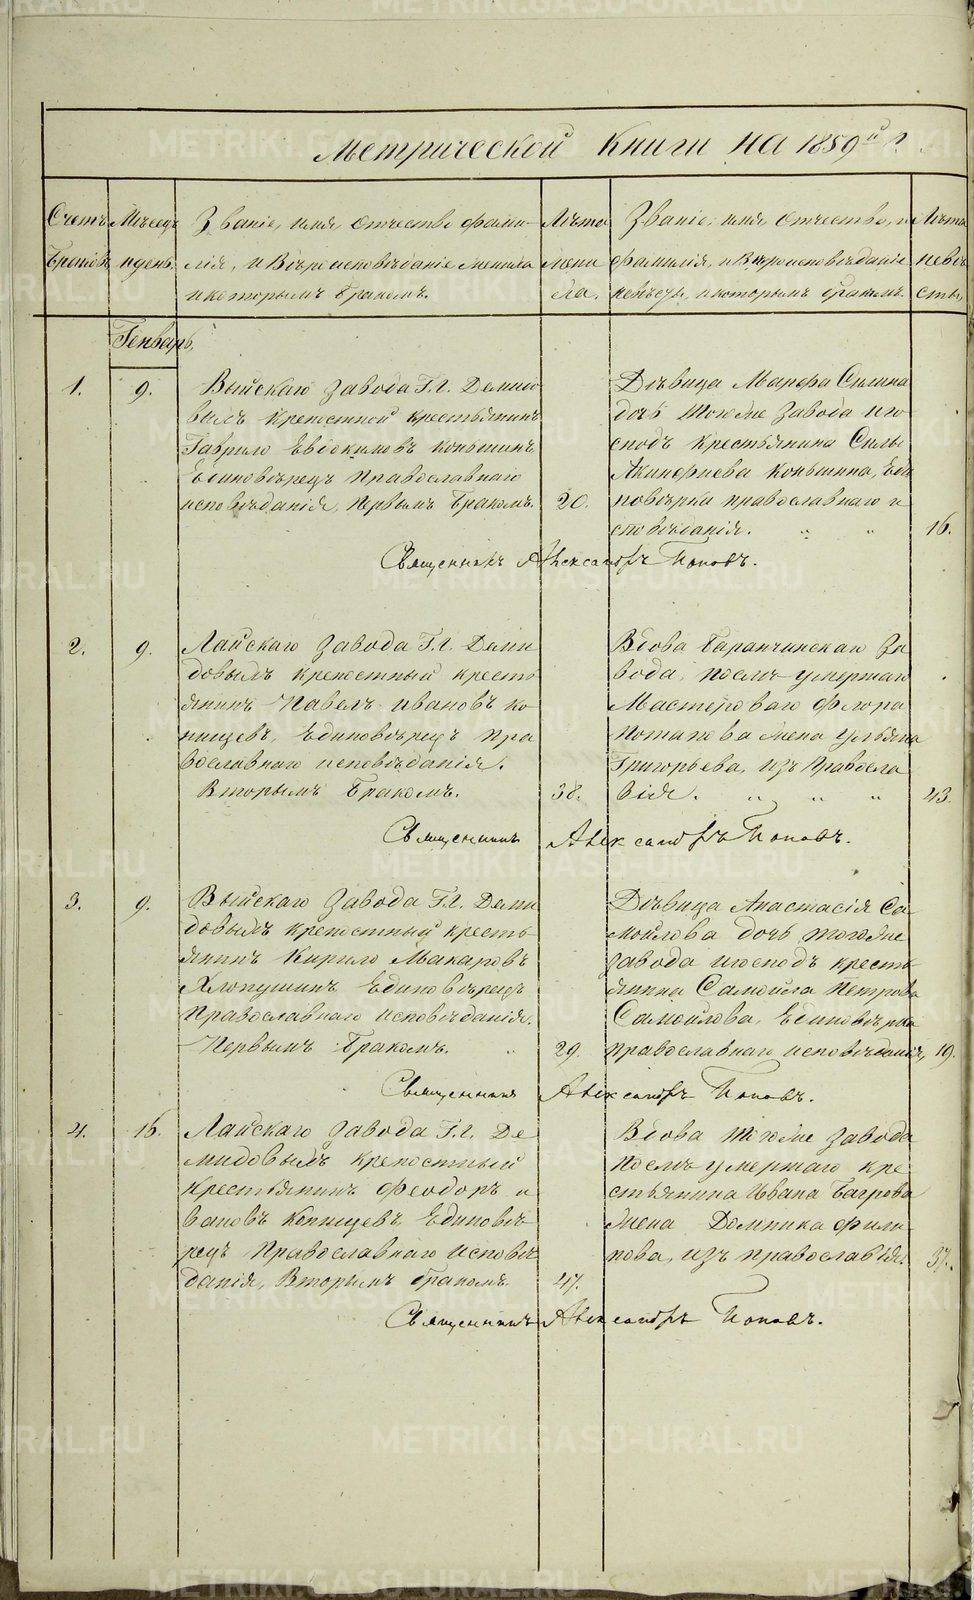 Метрической Книги на 1859й г.
Счетъ Браковъ
Мѣсяцъ и день.
Званіе, имя, отчество фами-
лія, и Вѣроисповѣданіе жениха
и которымъ бракомъ.
Лѣта
жени
ха.
Званіе, имя, отчество,
фамилія, и Вѣроисповѣданіе
невѣсты, и которымъ бракомъ.
Лѣта
невѣ
сты,
Генварь,
1. 9.
Выйскаго Завода Г.г. Демидо
вымъ Крепостной крестьянинъ
Гаврило Евдокимовъ Коньшинъ
Единовѣрецъ Православнаго
исповѣданія, Первымъ Бракомъ. 20.
Дѣвица Марфа Силина
дочь Тогоже Завода и го
сподъ крестьянина Силы
Акинфиева Коньшина, Еди
новѣрка православнаго и
сповѣданія. " " 16.
Священникъ Александръ Поповъ.
2. 9.
Лайскаго Завода Г.г. Деми
довымъ крепостный кресть
янинъ Павелъ Ивановъ Ко
пищевъ, Единовѣрецъ Пра
вославнаго исповѣданія.
Вторымъ Бракомъ. 38.
Вдова Баранчинскаго За
вода, послѣ умершаго
Мастероваго Флора
Потапова жена Ульяна
Григорьева, изъ Правосла
вія. " " " 43.
Священникъ Александръ Поповъ.
3. 9.
Выйскаго Завода Г.г. Деми
довымъ крепостный кресть
янинъ Кирило Макаровъ
Хлопушинъ Единовѣрецъ
Православнаго исповѣданія.
Первымъ Бракомъ. " 29.
Дѣвица Анастасія Са
мойлова дочь тогоже
завода и господъ кресть
янина Самойла Петрова
Самойлова, Единовѣрка
православнаго исповѣданія, 19.
Священникъ Александръ Поповъ.
4. 16.
Лайскаго Завода Г.г. Де
мидовымъ крепостный
крестьянинъ Феодоръ и
вановъ Копищевъ, Единовѣ
рецъ Православнаго Исповѣ
данія, Вторымъ бракомъ 47.
Вдова тогоже завода
послѣ умершаго кре
стьянина Ивана Багрова
жена Домника Фили
пова, изъ православія. 37.
Священникъ Александръ Поповъ.
METRIKI.GASO-URAL.RU